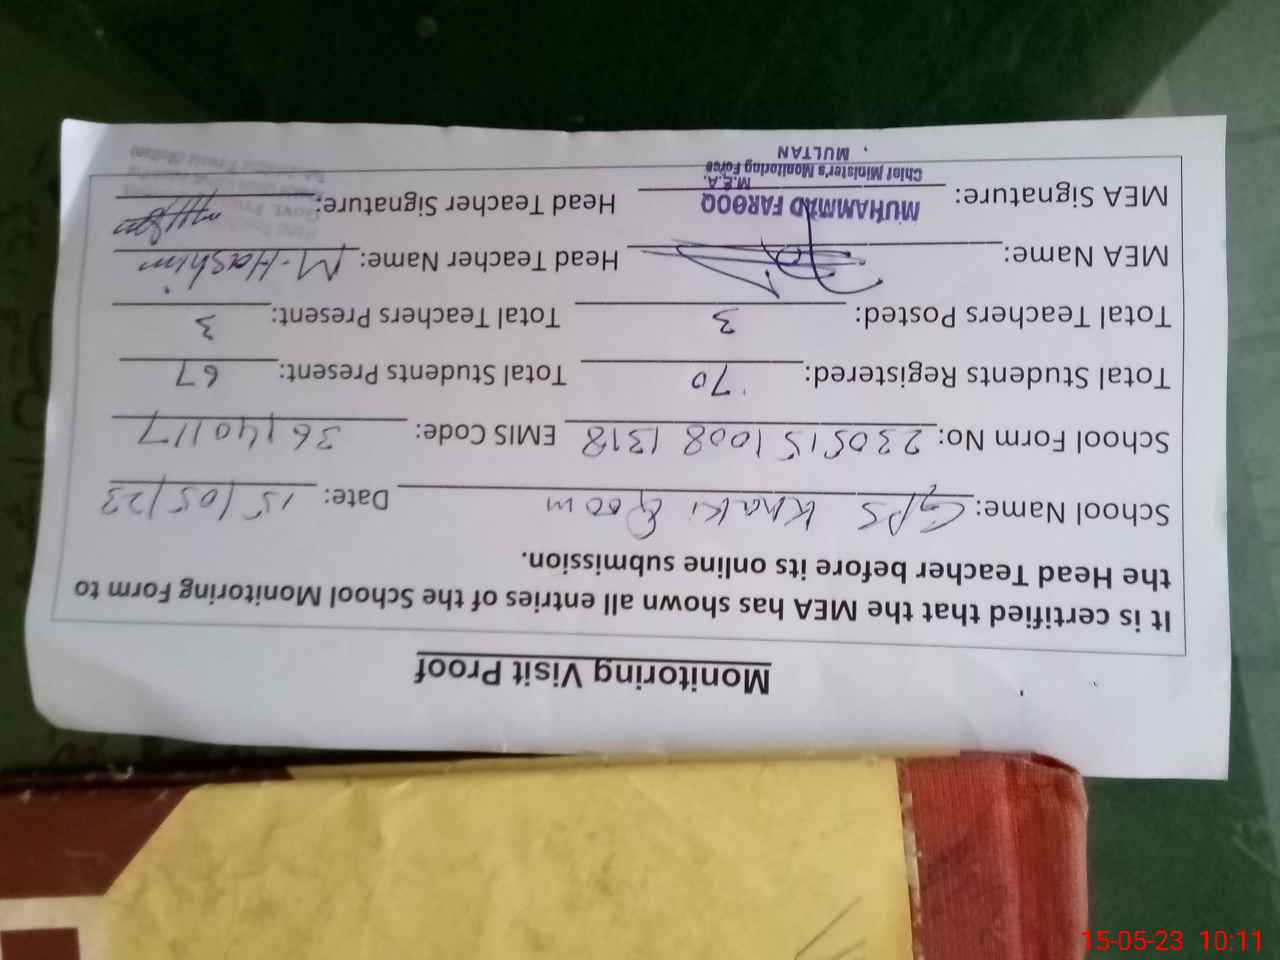 Monitoring Visit Proof
It is certified that the MEA has shown all entries of the School Monitoring Form to
the Head Teacher before its online submission.
School Name: GPS Khaki Goom Date: 15/05/23
School Form No: 230515 1008 1318 EMIS Code: 36140117
Total Students Registered: 70 Total Students Present: 67
Total Teachers Posted: 3 Total Teachers Present: 3
MEA Name: Head Teacher Name: M-Hashim
MEA Signature: Head Teacher Signature:
MUHAMMAD FAROOQ
M.E.A.
Chief Minister's Monitoring Force
MULTAN
15-05-23 10:11